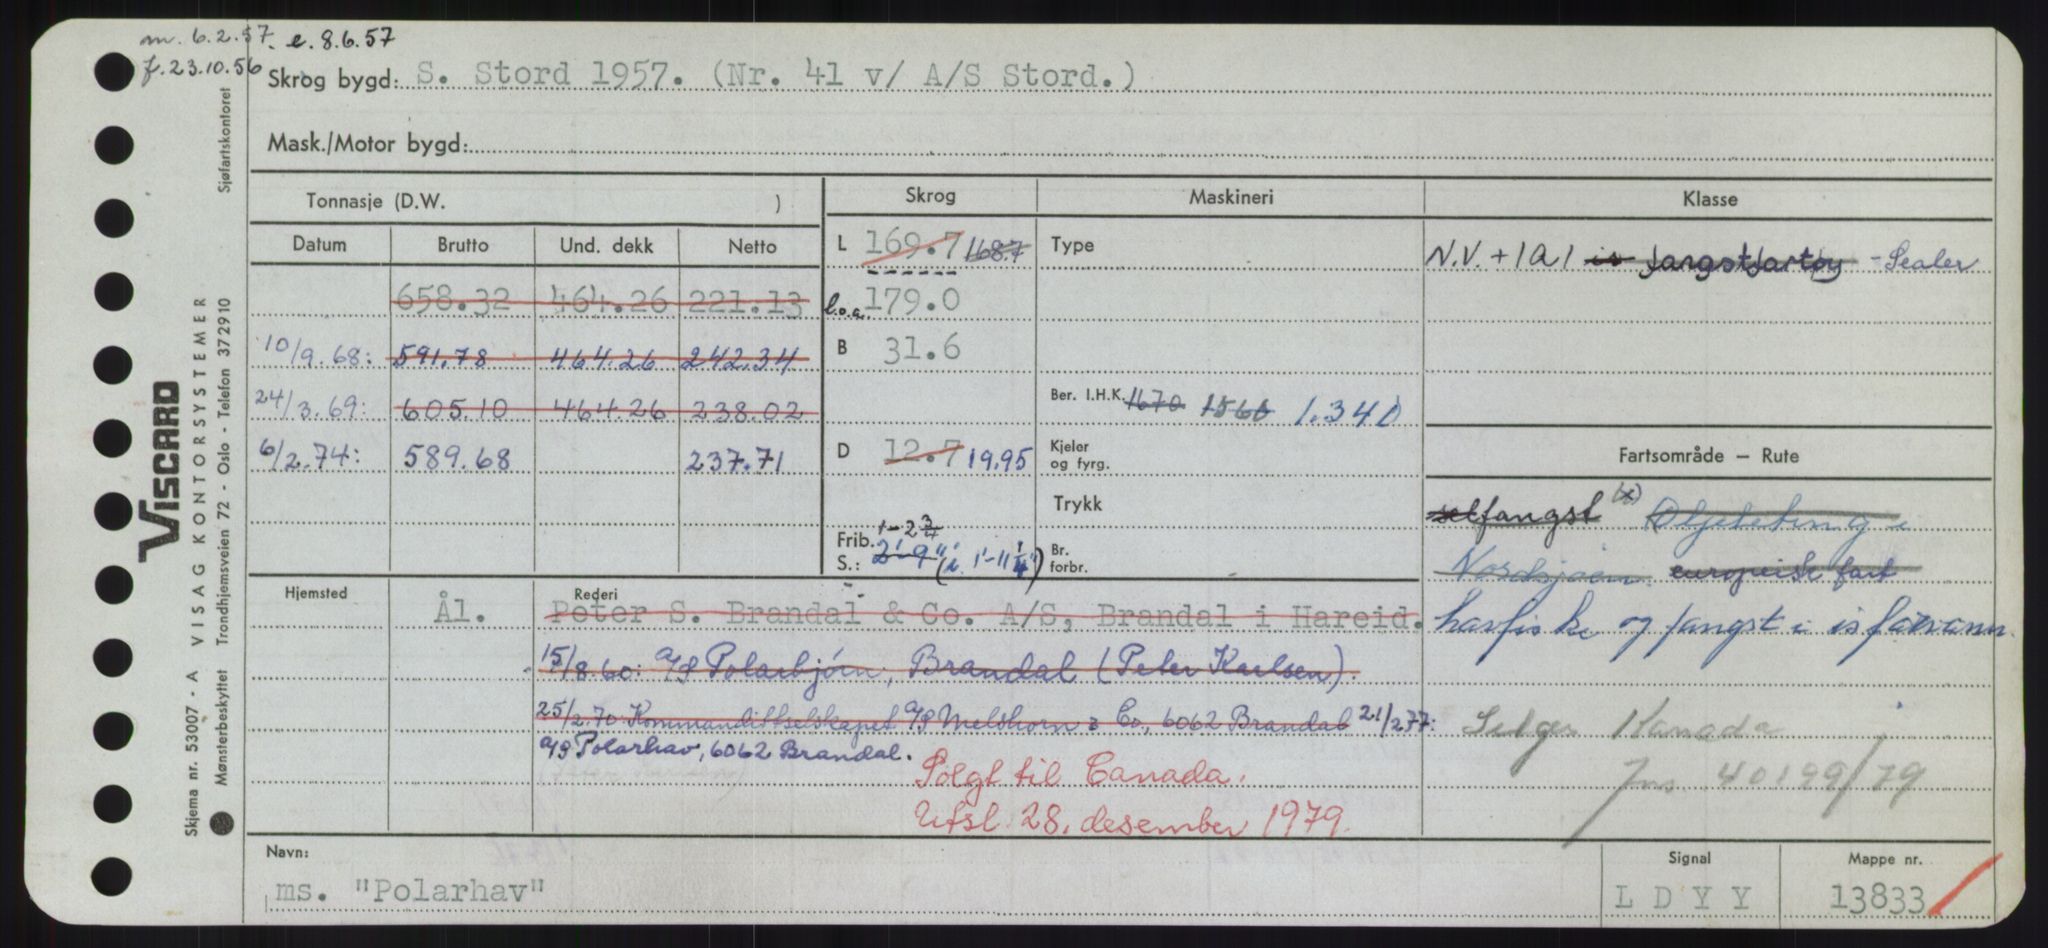 m. 6.2.57. e. 8.6.57
f. 23.10.56
Skrog bygd: S. Stord 1957. (Nr. 41 v/ A/S Stord.)
Mask./Motor bygd:
Tonnasje (D.W. )
Skrog
Maskineri
Klasse
Datum Brutto Und. dekk Netto
658.32 464.26 221.13
10/9.68: 591.78 464.26 242.34
24/3.69: 605.10 464.26 238.02
6/2.74: 589.68 237.71
L 169.7 168.7
l.o.a. 179.0
B 31.6
D 12.7 19.95
1-2 3/4
Frib. S.: 2'-9" (i. 1'-11 1/4")
Type
Ber. I.H.K. 1670 1560 1.340
Kjeler og fyrg.
Trykk
Br. forbr.
N.V. + 1A1 is fangstfartøy - Sealer
Fartsområde — Rute
selfangst (x) Oljeleting i
Nordsjøen. europeisk fart
havfiske og fangst i isfarvann.
Selges Kanada
Jnr. 40199/79
Hjemsted
Ål.
Rederi
Peter S. Brandal & Co. A/S, Brandal i Hareid.
15/8.60: A/S Polarbjørn, Brandal (Peter Karlsen).
25/2.70: Kommandittselskapet A/S Melshorn & Co, 6062 Brandal 21/2 77:
A/S Polarhav, 6062 Brandal.
Solgt til Canada.
Utsl. 28. desember 1979.
Navn:
ms. "Polarhav"
Signal
L D Y Y
Mappe nr.
13833
Skjema nr. 53007 - A VISAG KONTORSYSTEMER Sjøfartskontoret
Mønsterbeskyttet Trondhjemsveien 72 - Oslo - Telefon 372910
VISCARD